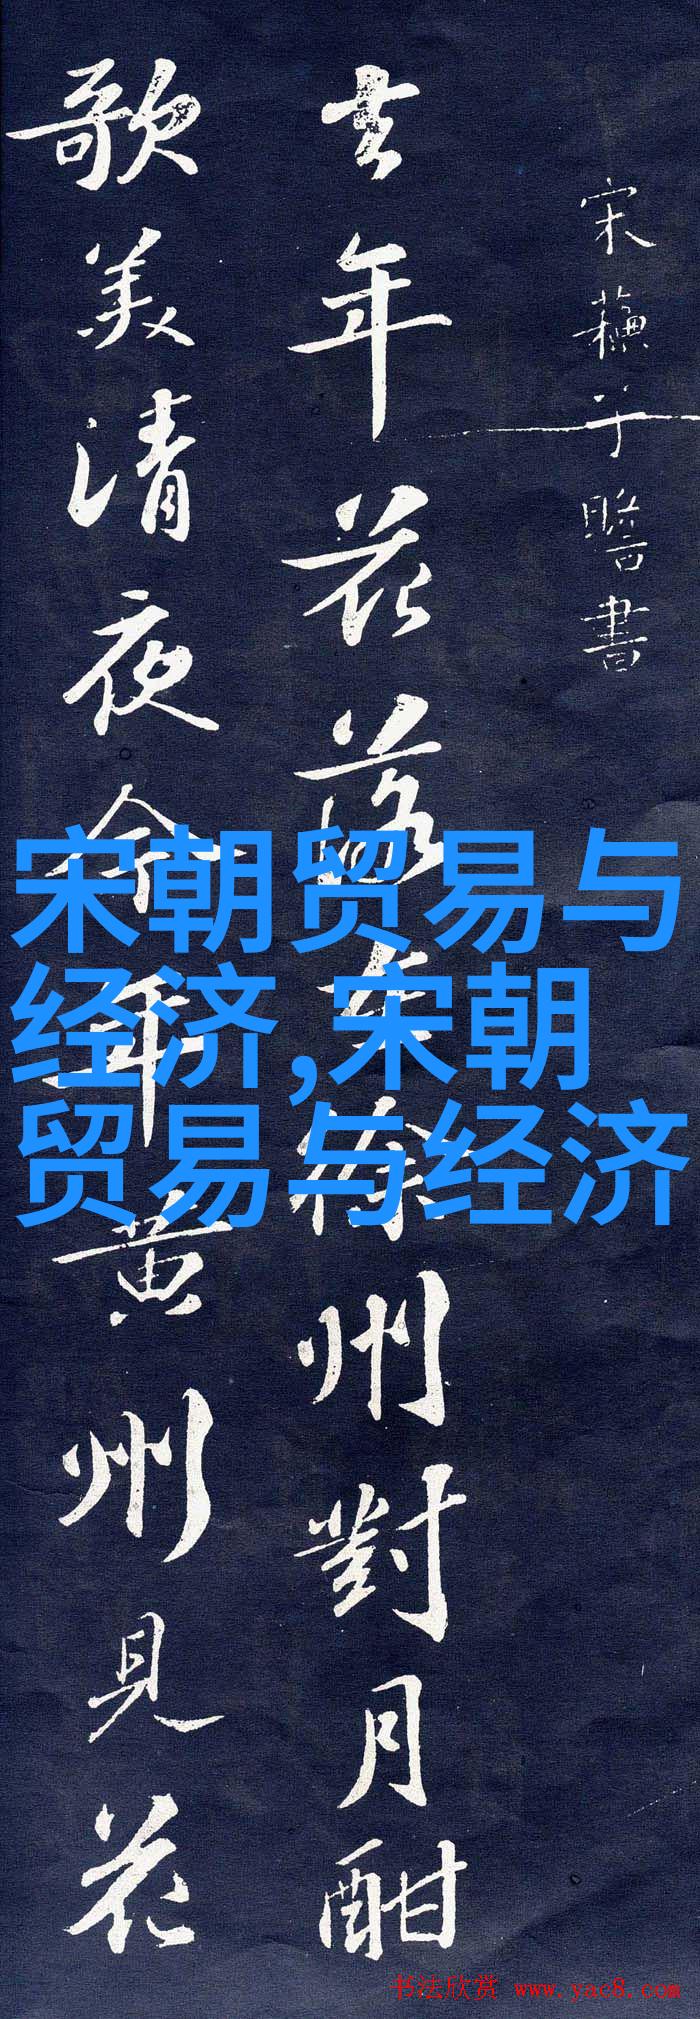 宋蘇子瞻書
去年花落在徐州對月酣
歌美清夜今年黄州見花
宋朝贸易与
经济,宋朝
贸易与经济
书法欣赏 www.yac8.com